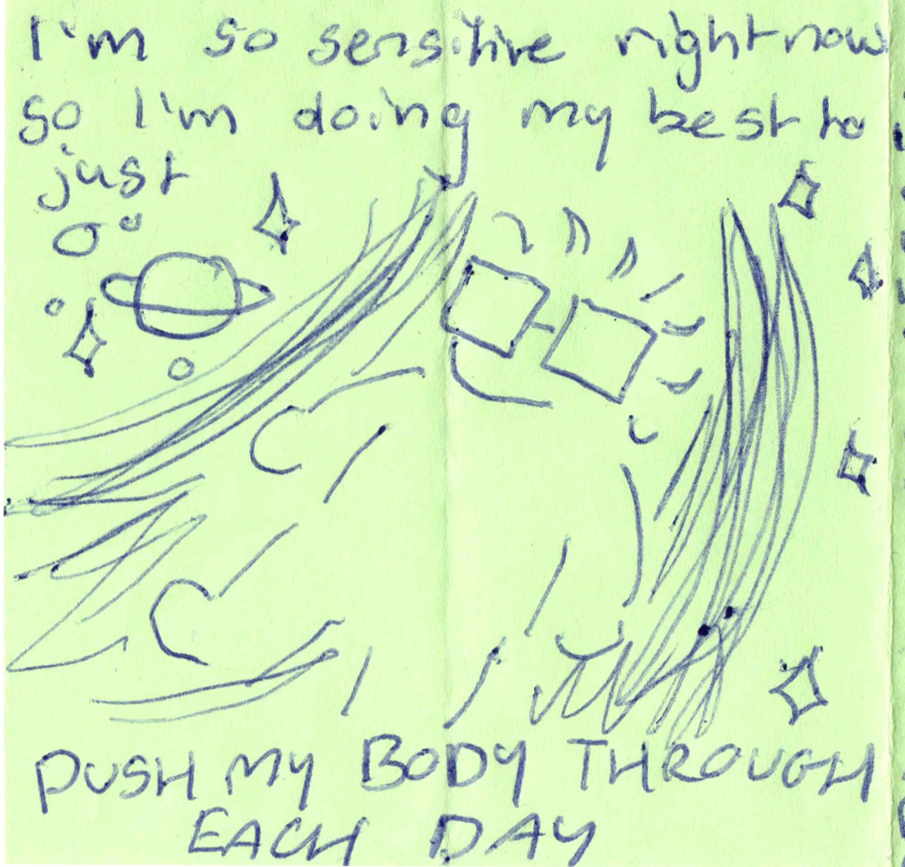 I'm so sensitive right now
so I'm doing my best to
just
PUSH MY BODY THROUGH
EACH DAY